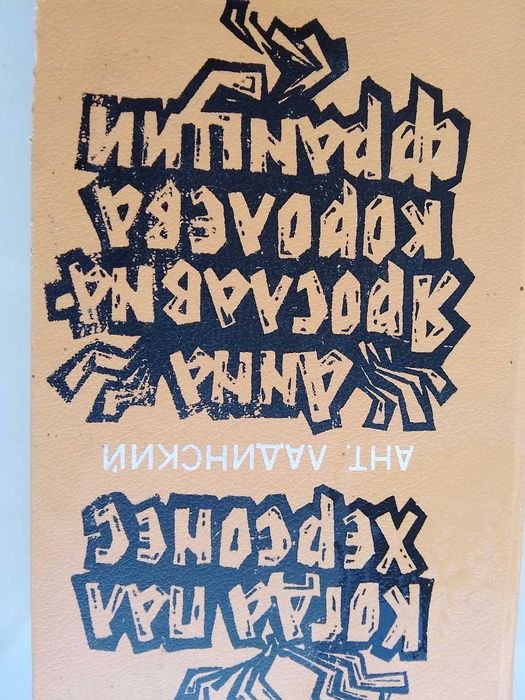 КОГДА ПАЛ
ХЕРСОНЕС
АНТ. ЛАДИНСКИЙ
АННА
ЯРОСЛАВНА-
КОРОЛЕВА
ФРАНЦИИ